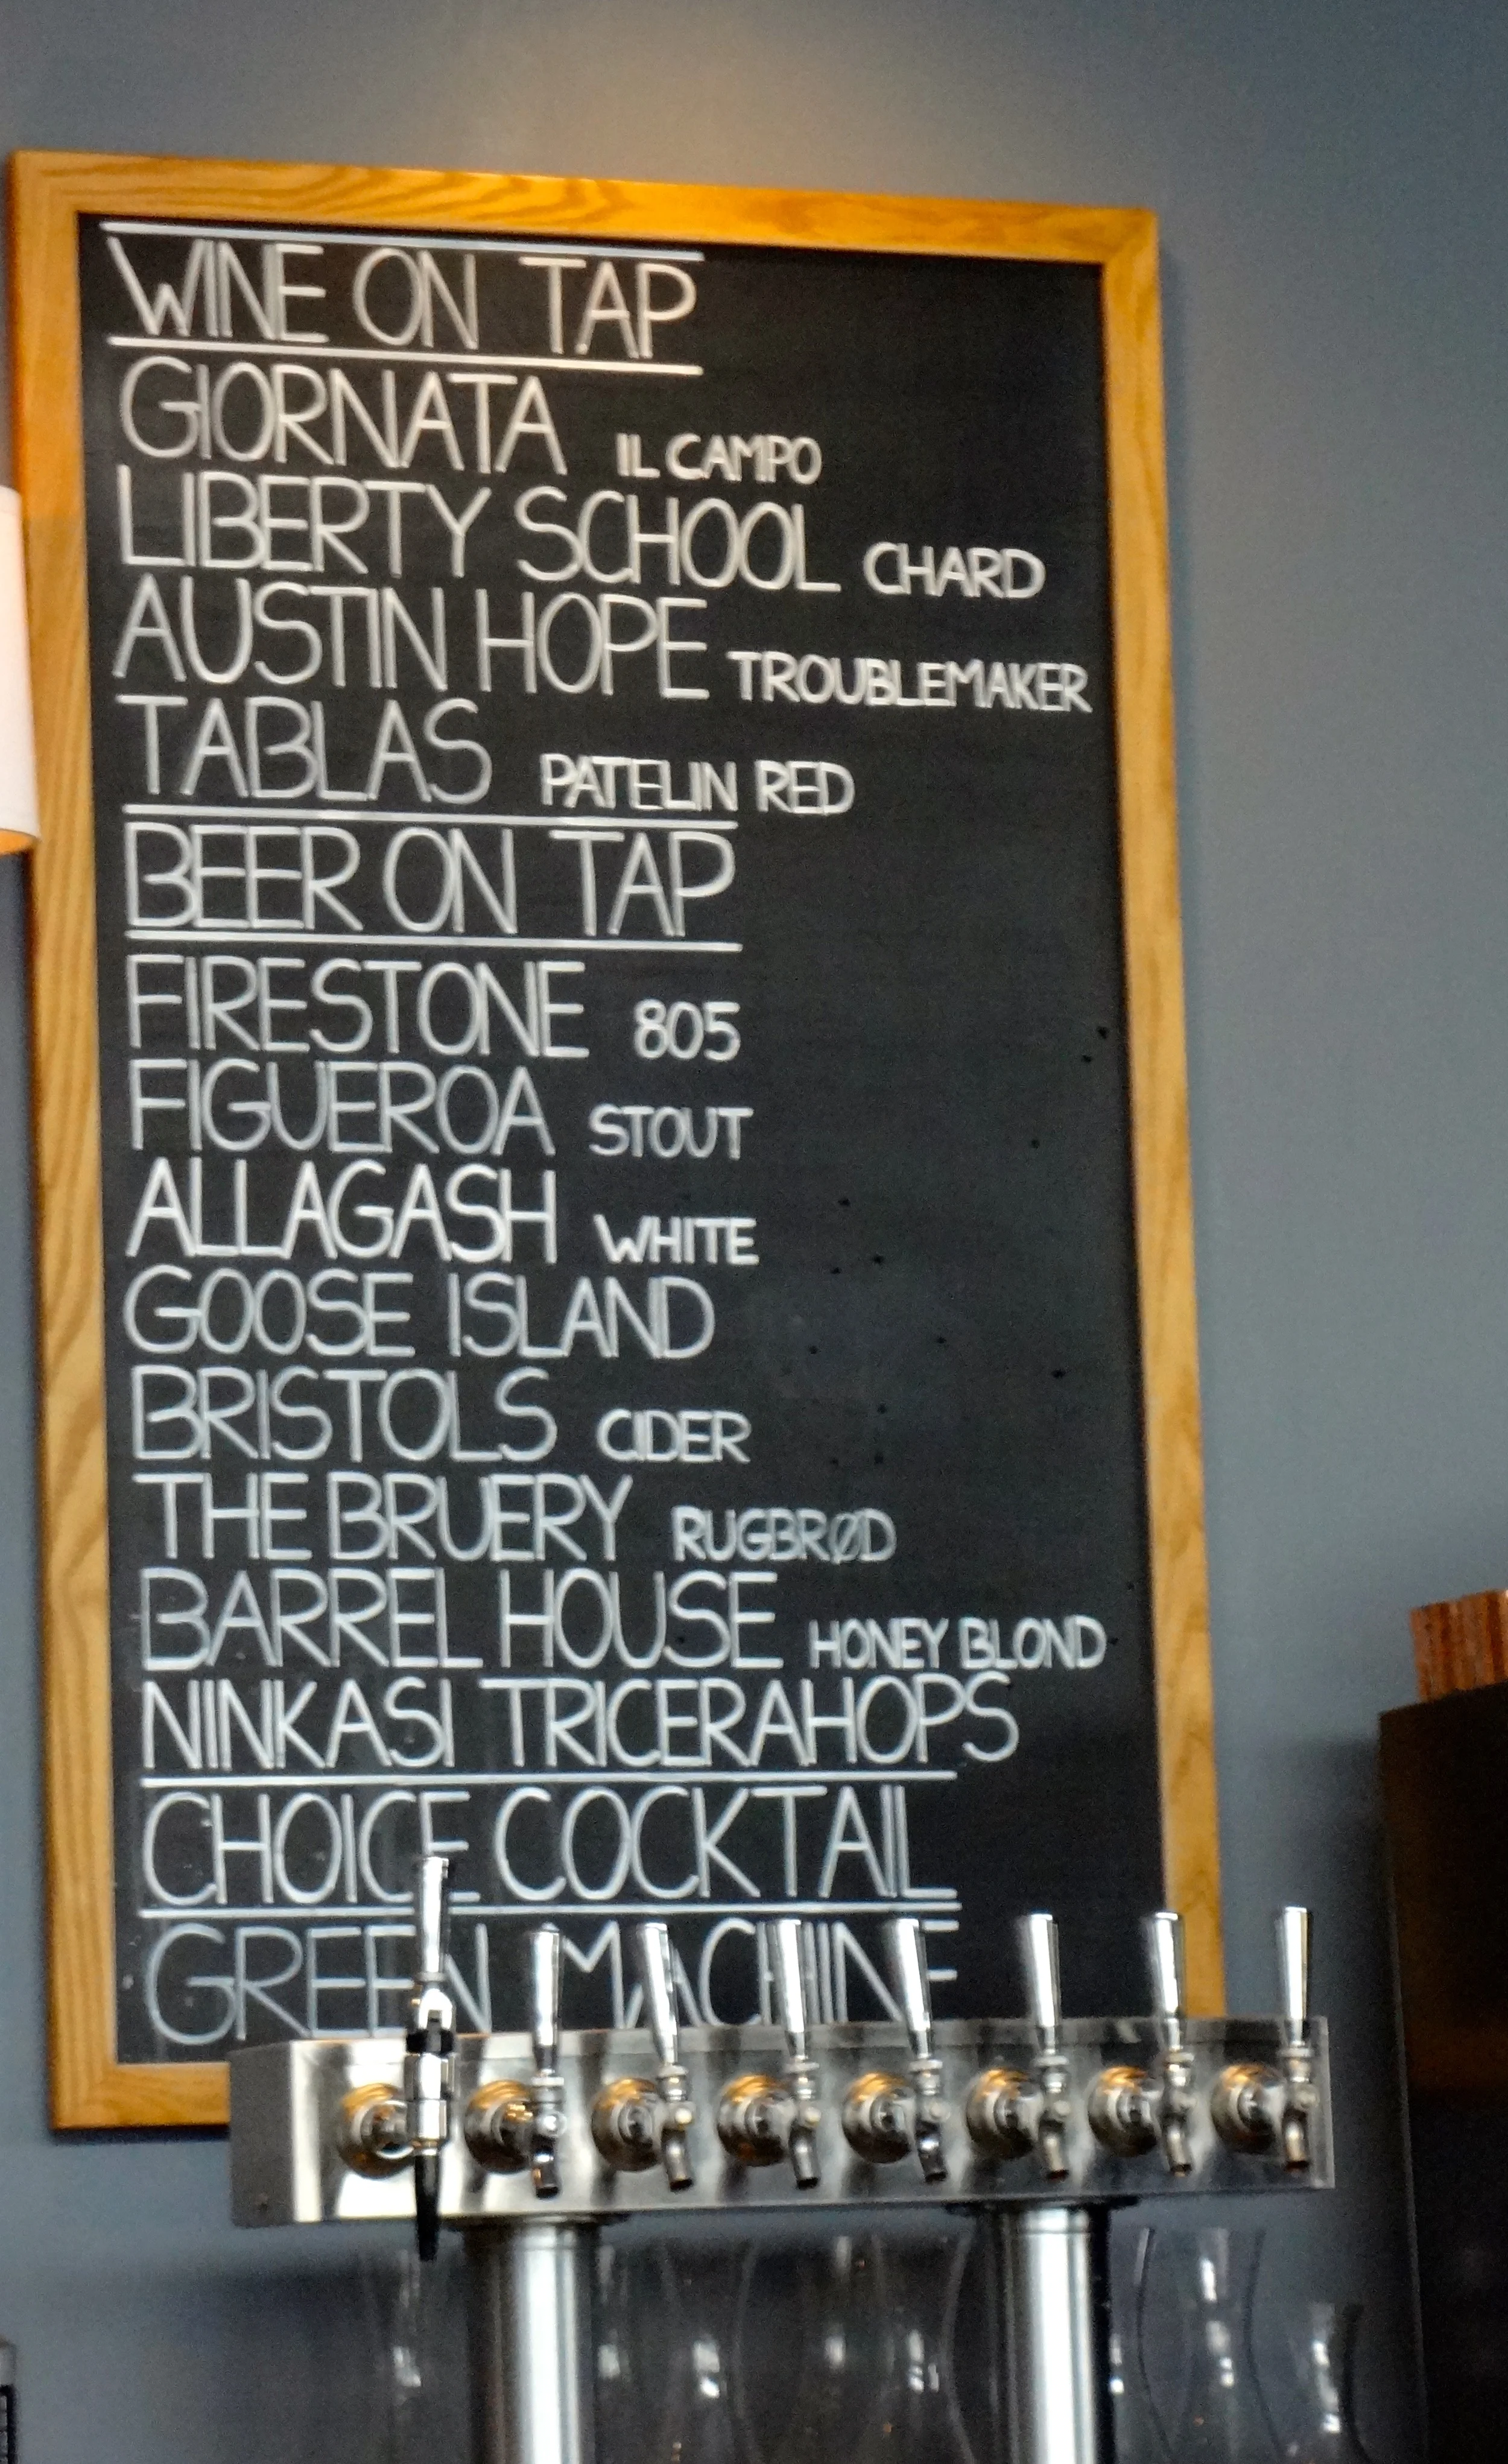 WINE ON TAP
GIORNATA IL CAMPO
LIBERTY SCHOOL CHARD
AUSTIN HOPE TROUBLEMAKER
TABLAS PATELIN RED
BEER ON TAP
FIRESTONE 805
FIGUEROA STOUT
ALLAGASH WHITE
GOOSE ISLAND
BRISTOLS CIDER
THE BRUERY RUGBRØD
BARREL HOUSE HONEY BLOND
NINKASI TRICERAHOPS
CHOICE COCKTAIL
GREEN MACHINE